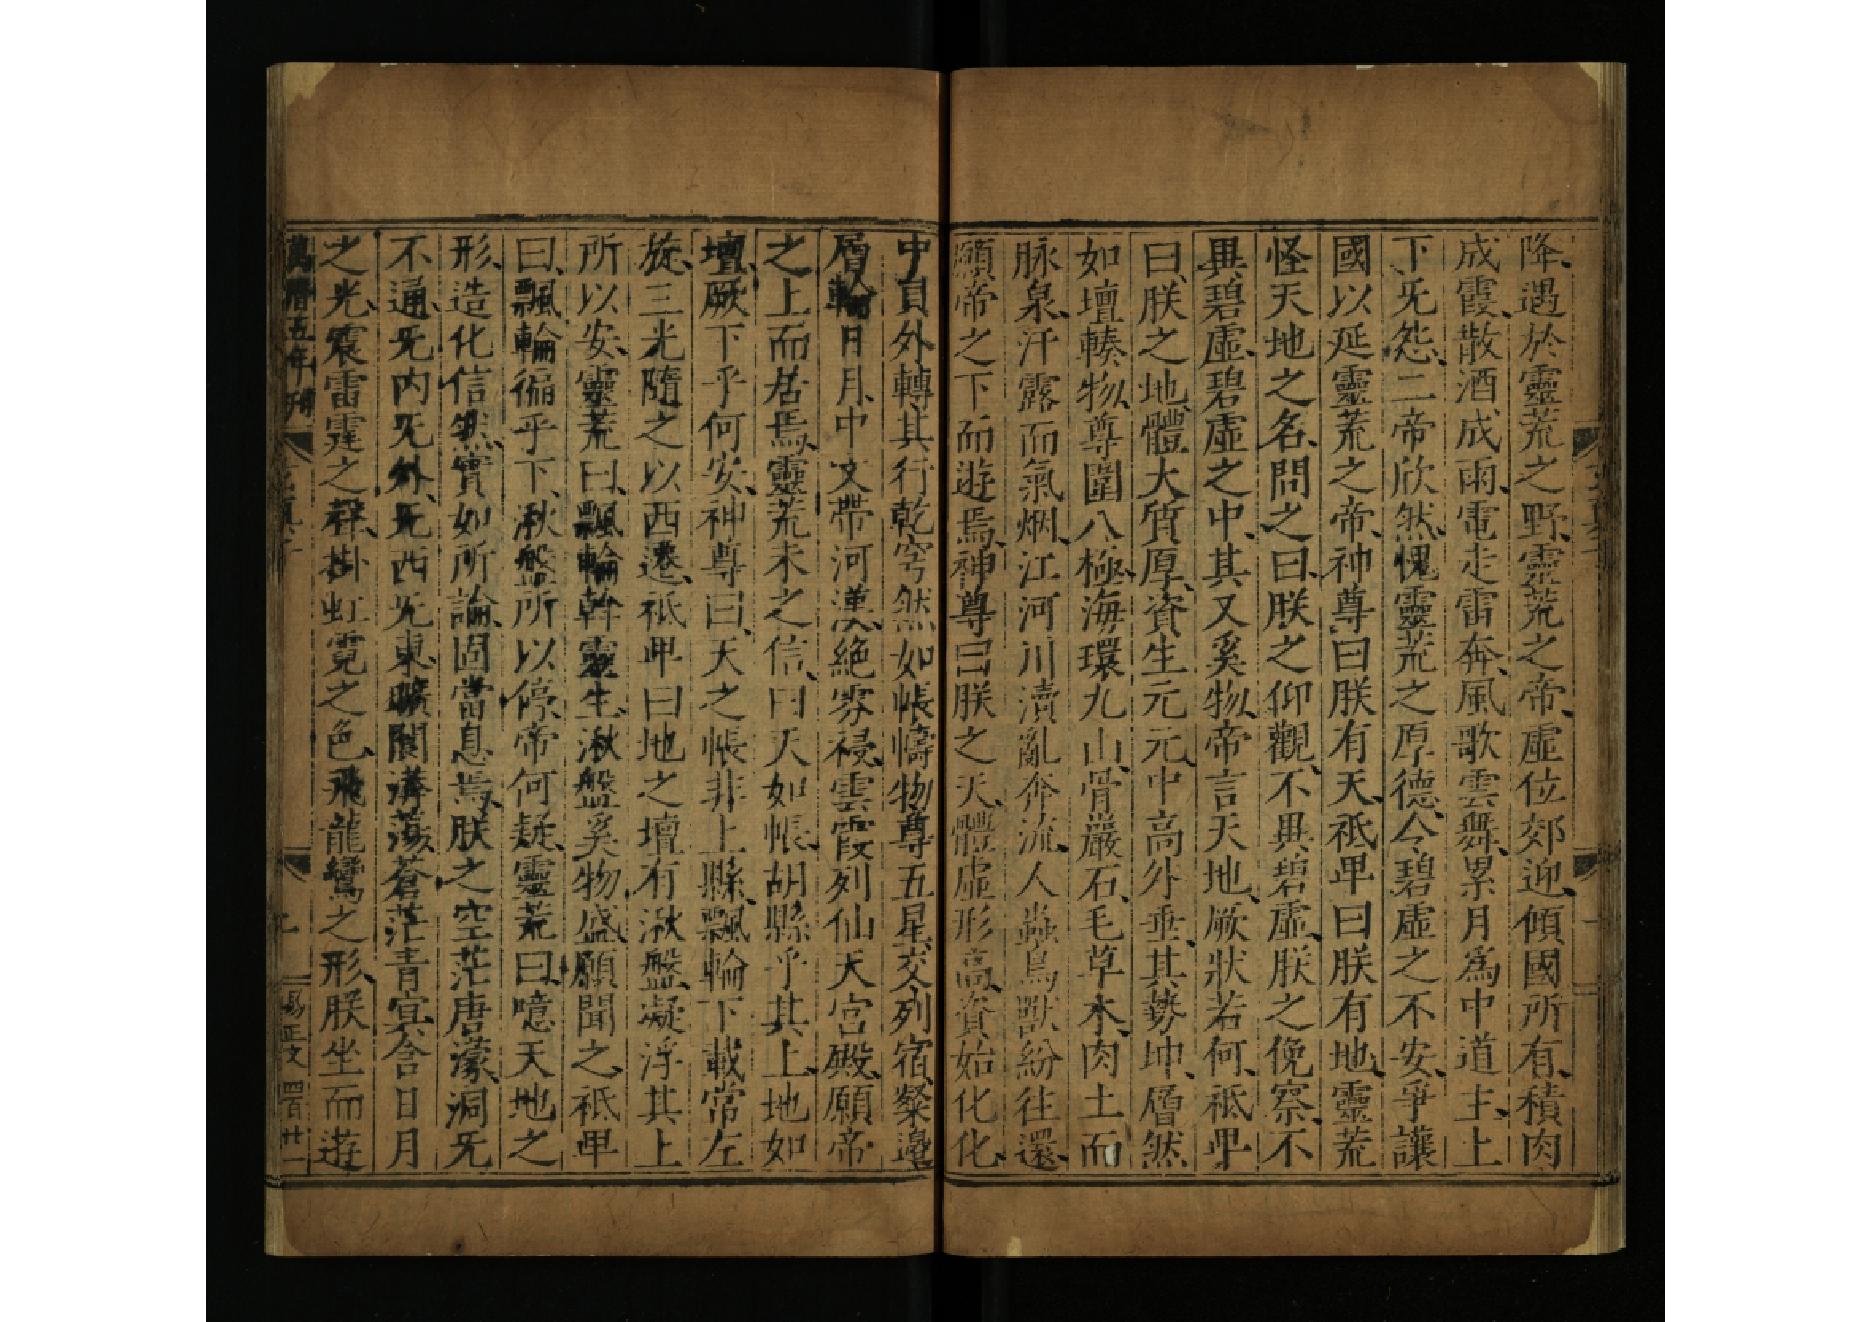 降遇於靈荒之野靈荒之帝虛位郊迎傾國所有積肉
成霞散酒成雨電走雷奔風歌雲舞累月為中道主上
下旡怨二帝欣然愧靈荒之厚德令碧虛之不安爭讓
國以延靈荒之帝神尊曰朕有天祗卑曰朕有地靈荒
怪天地之名問之曰朕之仰觀不異碧虛朕之俛察不
異碧虛碧虛之中其又奚物帝言天地厥狀若何祗卑
曰朕之地體大質厚資生元元中高外垂其勢坤層然
如壇輳物尊圍八極海環九山骨巖石毛草木肉土而
脉泉汗露而氣烟江河川瀆亂奔流人蟲鳥獸紛往還
願帝之下而遊焉神尊曰朕之天體虛形高資始化化
中貟外轉其行乾穹然如帳幬物尊五星交列宿粲邊
層輪日月中文帶河漢絶雰祲雲霞列仙天宮殿願帝
之上而居焉靈荒未之信曰天如帳胡縣乎其上地如
壇厥下乎何安神尊曰天之帳非上縣飄輪下載常左
旋三光隨之以西還祗卑曰地之壇有湫盤凝浮其上
所以安靈荒曰飄輪斡靈生湫盤奚物盛願聞之祗卑
曰飄輪徧乎下湫盤所以停帝何疑靈荒曰噫天地之
形造化信然實如所論固當息焉朕之空茫唐濛洞旡
不通旡内旡外旡西旡東曠閬漭蕩蒼茫青冥含日月
之光震雷霆之聲掛虹霓之色飛龍鸞之形朕坐而遊
萬曆五年刊 易正文 罟 廿一